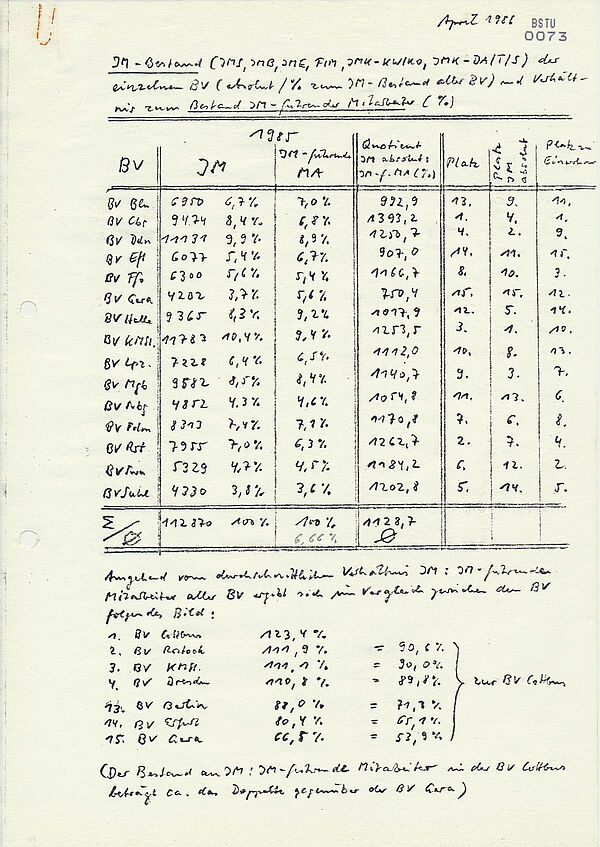 April 1986
BSTU
0073
IM-Bestand (IMS, IMB, IME, FIM, IMK-KW/KO, IMK-DA/T/S) der
einzelnen BV (absolut / % zum IM-Bestand aller BV) und Verhält-
nis zum Bestand IM-führender Mitarbeiter (%)
1985
BV IM IM-führende MA Quotient IM absolut: IM-f. MA (%) Platz Platz IM absolut Platz zu Einwohner
BV Bln 6950 6,7% 7,0% 992,9 13. 9. 11.
BV Cbs 9474 8,4% 6,8% 1393,2 1. 4. 1.
BV Ddn 11131 9,9% 8,9% 1250,7 4. 2. 9.
BV Eft 6077 5,4% 6,7% 907,0 14. 11. 15.
BV Ffo 6300 5,6% 5,4% 1166,7 8. 10. 3.
BV Gera 4202 3,7% 5,6% 750,4 15. 15. 12.
BV Halle 9365 8,3% 9,2% 1017,9 12. 5. 14.
BV KMSt. 11783 10,4% 9,4% 1253,5 3. 1. 10.
BV Lpz. 7228 6,4% 6,5% 1112,0 10. 8. 13.
BV Mgb 9582 8,5% 8,4% 1140,7 9. 3. 7.
BV Nbg 4852 4,3% 4,6% 1054,8 11. 13. 6.
BV Pdm 8313 7,4% 7,1% 1170,8 7. 6. 8.
BV Rst 7955 7,0% 6,3% 1262,7 2. 7. 4.
BV Swn 5329 4,7% 4,5% 1184,2 6. 12. 2.
BV Suhl 4330 3,8% 3,6% 1202,8 5. 14. 5.
Σ/∅ 112870 100% 100% 1128,7
6,66% ∅
Ausgehend vom durchschnittlichen Verhältnis IM : IM-führende
Mitarbeiter aller BV ergibt sich im Vergleich zwischen den BV
folgendes Bild:
1. BV Cottbus 123,4%
2. BV Rostock 111,9% = 90,6%
3. BV KMSt. 111,1% = 90,0%
4. BV Dresden 110,8% = 89,8% zur BV Cottbus
13. BV Berlin 88,0% = 71,3%
14. BV Erfurt 80,4% = 65,1%
15. BV Gera 66,5% = 53,9%
(Der Bestand an IM : IM-führende Mitarbeiter in der BV Cottbus
beträgt ca. das Doppelte gegenüber der BV Gera)